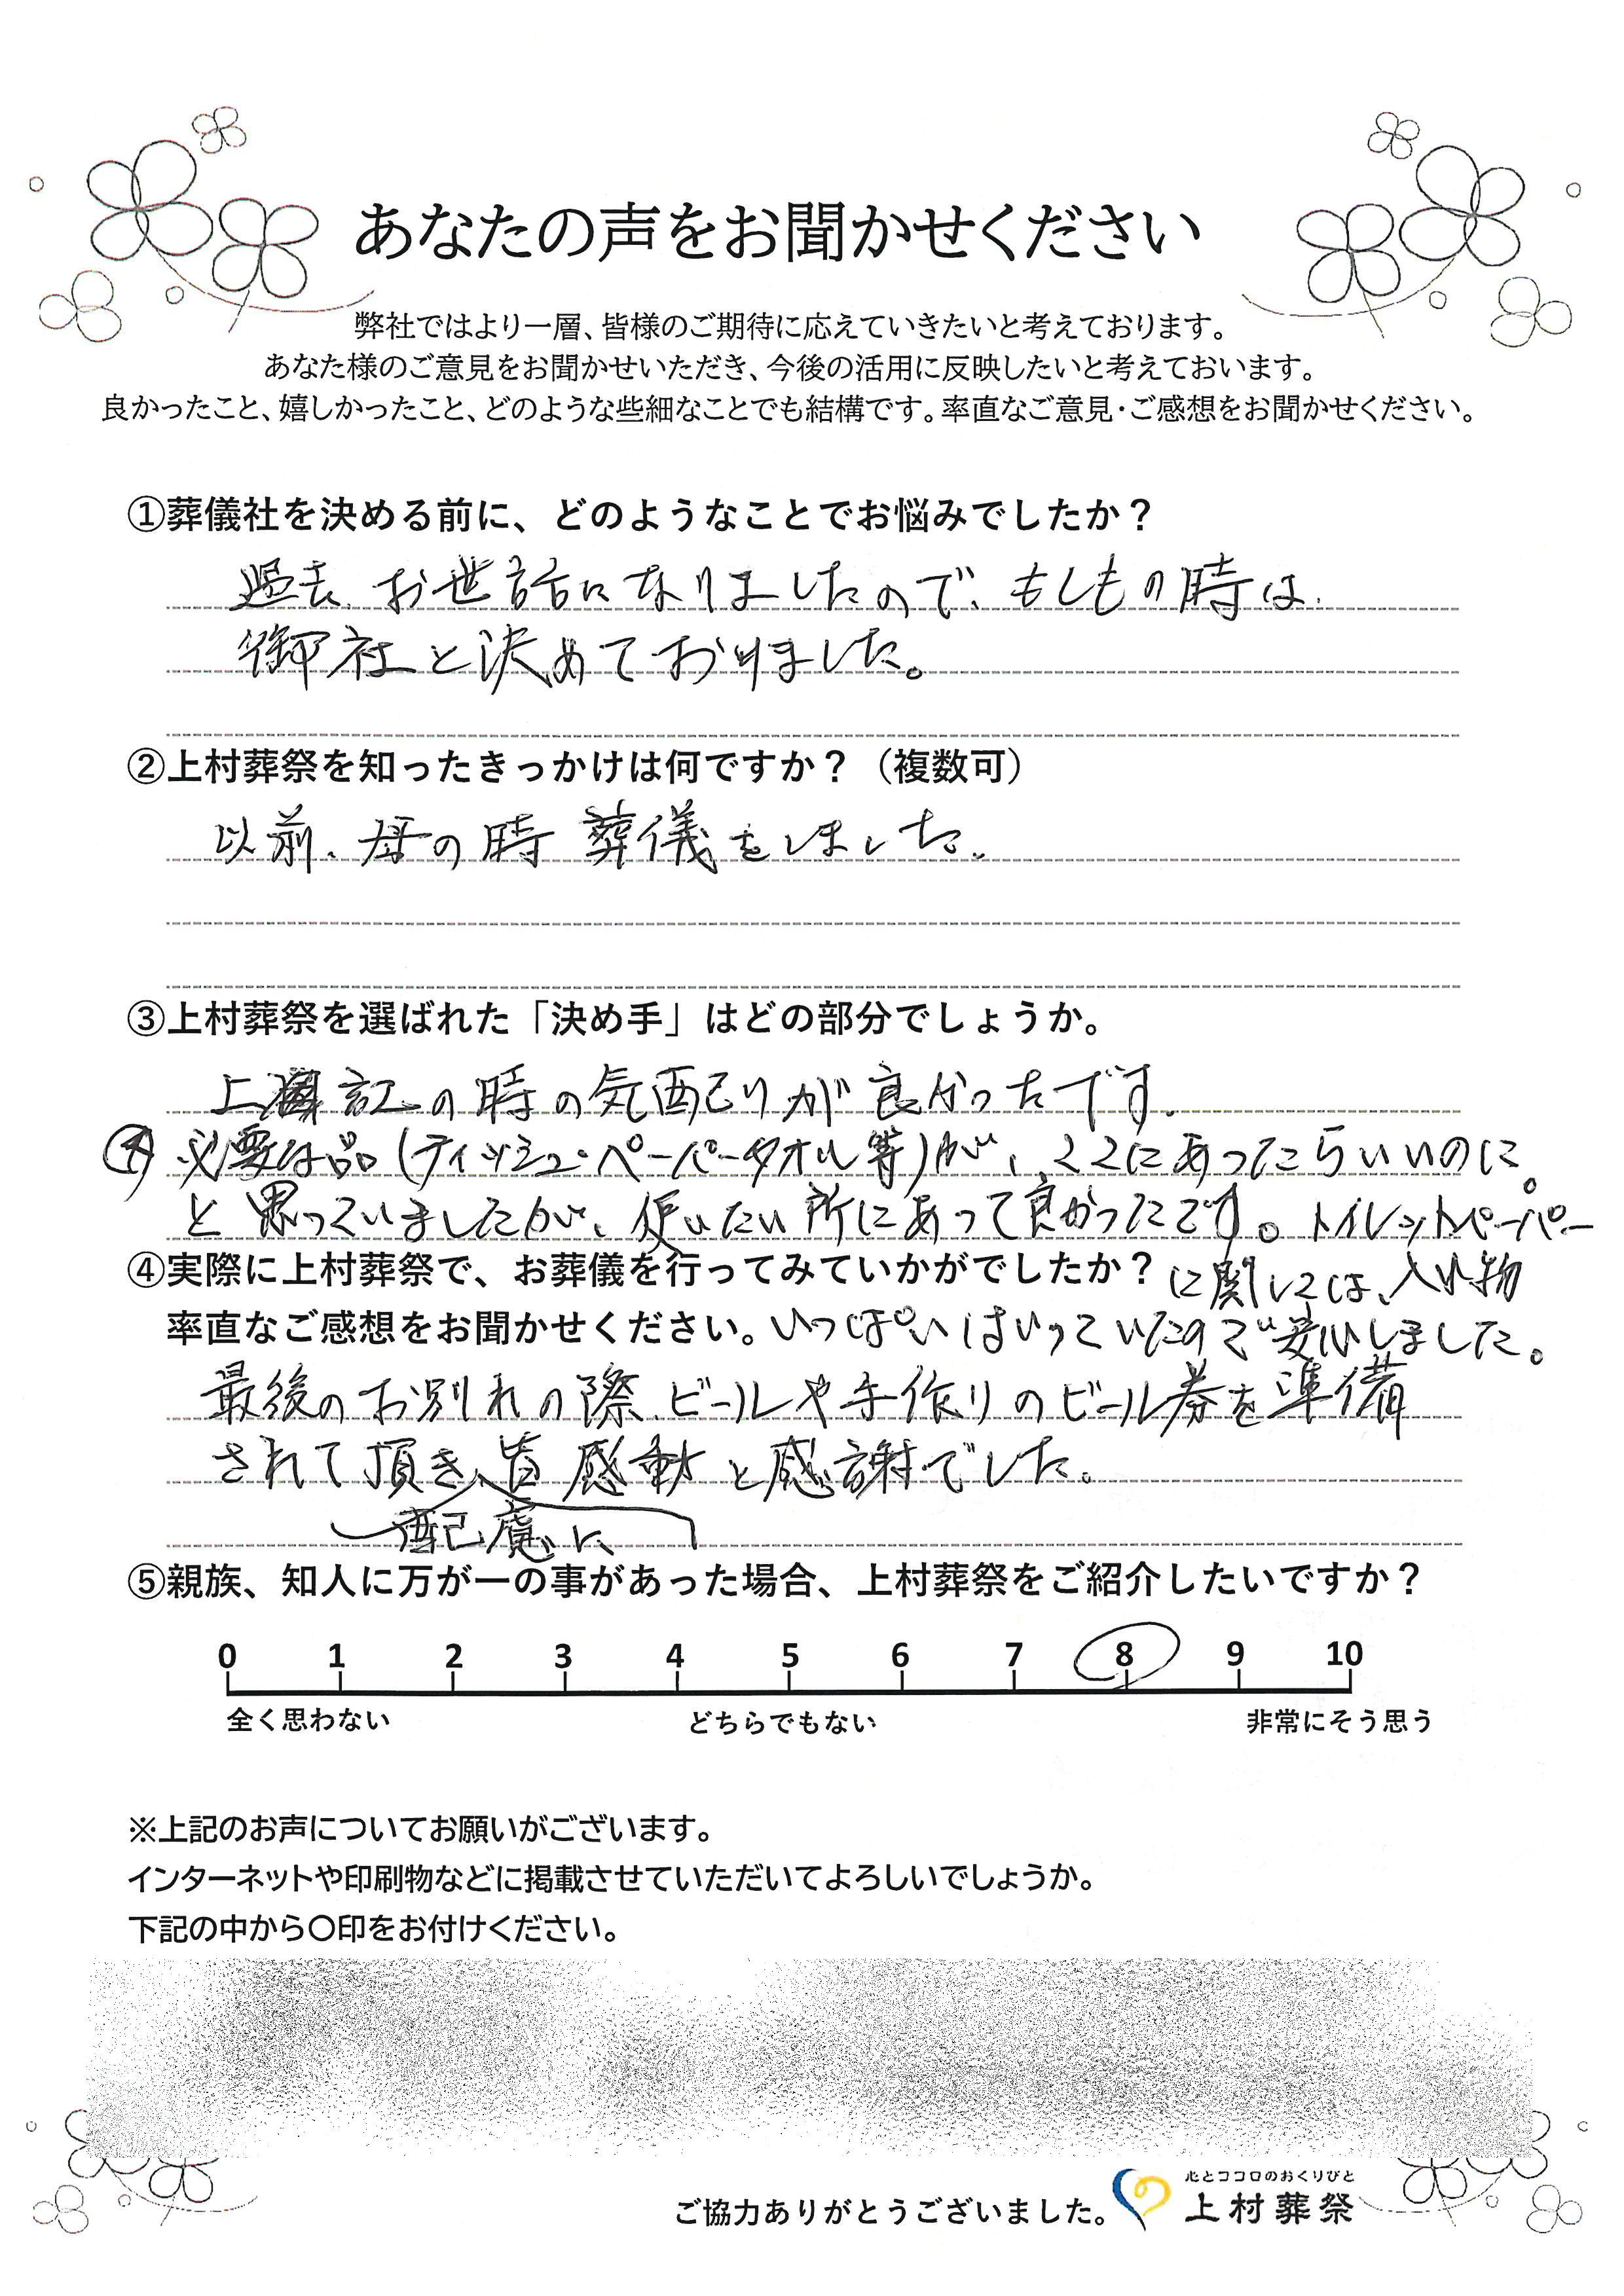 あなたの声をお聞かせください
弊社ではより一層、皆様のご期待に応えていきたいと考えております。
あなた様のご意見をお聞かせいただき、今後の活用に反映したいと考えておいます。
良かったこと、嬉しかったこと、どのような些細なことでも結構です。率直なご意見・ご感想をお聞かせください。
①葬儀社を決める前に、どのようなことでお悩みでしたか？
過去、お世話になりましたので、もしもの時は、
御社と決めておりました。
②上村葬祭を知ったきっかけは何ですか？（複数可）
以前、母の時葬儀をしました。
③上村葬祭を選ばれた「決め手」はどの部分でしょうか。
上記の時の気配りが良かったです。
必要な品(ティッシュ・ペーパータオル等)が、ここにあったらいいのに。
と思っていましたが、使いたい所にあって良かったです。トイレットペーパー
に関しては、入れ物
いっぱいはいっていたので安心しました。
④実際に上村葬祭で、お葬儀を行ってみていかがでしたか？
率直なご感想をお聞かせください。
最後のお別れの際、ビールや手作りのビール券を準備
されて頂き、皆感動と感謝でした。
配慮に、
⑤親族、知人に万が一の事があった場合、上村葬祭をご紹介したいですか？
0 1 2 3 4 5 6 7 8 9 10
全く思わない どちらでもない 非常にそう思う
※上記のお声についてお願いがございます。
インターネットや印刷物などに掲載させていただいてよろしいでしょうか。
下記の中から〇印をお付けください。
ご協力ありがとうございました。
心とココロのおくりびと
上村葬祭